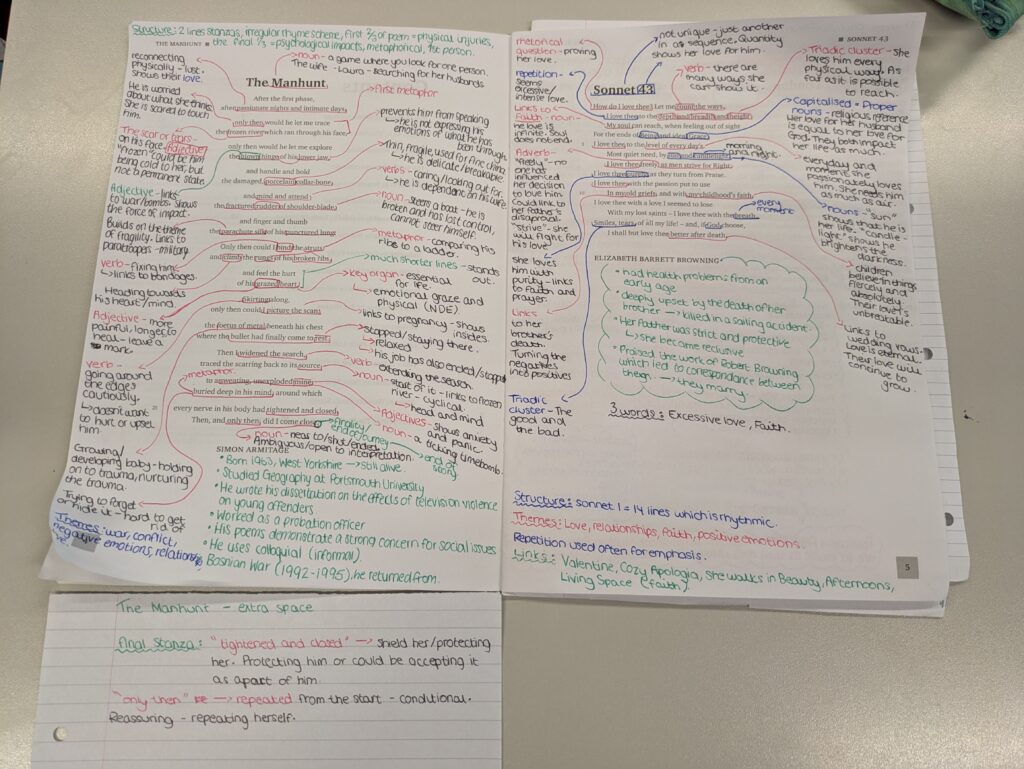 Structure: 2 lines stanzas, irregular rhyme scheme, first 2/3 of poem = physical injuries,
the final 1/3 = psychological impacts, metaphorical, 1st person.
THE MANHUNT
noun - a game where you look for one person.
The wife - Laura - searching for her husbands
The Manhunt
After the first phase,
after passionate nights and intimate days,
only then would he let me trace
the frozen river which ran through his face,
only then would he let me explore
the blown hinge of his lower jaw,
and handle and hold
the damaged, porcelain collar-bone,
and mind and attend
the fractured rudder of shoulder-blade,
and finger and thumb
the parachute silk of his punctured lung.
Only then could I bind the struts
and climb the rungs of his broken ribs,
and feel the hurt
of his grazed heart.
Skirting along,
only then could I picture the scan,
the foetus of metal beneath his chest
where the bullet had finally come to rest.
Then I widened the search,
traced the scarring back to its source
to a sweating, unexploded mine
buried deep in his mind, around which
every nerve in his body had tightened and closed.
Then, and only then, did I come close.
SIMON ARMITAGE
reconnecting
physically - lust.
shows their love.
He is worried
about what she thinks.
She is scared to touch
him.
The scar or tears
on his face. Adjective -
"frozen" could be him
being cold to her, but
not a permanent state.
Adjective - links
to war/bombs. Shows
the force of impact.
Builds on the theme
of fragility. Links to
paratroopers - military.
verb - fixing him
links to bondages.
Heading towards
his heart/mind.
Adjective - more
painful, longer to
heal - leave a
mark.
verb -
going around
the edges
cautiously.
doesn't want
to hurt or upset
him.
Growing/
developing baby - holding
on to trauma, nurturing
the trauma.
Trying to forget
or hide it - hard to get
rid of.
Themes: war, conflict,
negative emotions, relationships
first metaphor
prevents him from speaking
he is not expressing his
emotions of what he has
been through.
Thin, fragile, used for fine china.
he is delicate/breakable
verbs - caring/looking out for.
he is dependent on his wife
noun - steers a boat - he is
broken and has lost control,
cannot steer himself.
metaphor - comparing his
ribs to a ladder.
much shorter lines - stands
out.
key organ - essential
for life.
emotional graze and
physical (NDE).
links to pregnancy - shows
insides.
stopped/staying there.
relaxed
his job has also ended/stopped
verb - extending the search.
noun - start of it - links to frozen
river - cyclical.
head and mind
metaphor.
Adjectives - shows anxiety
and panic
noun - a ticking timebomb.
finality/
end of journey
end of
story
noun - near to/shut/ended.
Ambiguous/open to interpretation.
• Born 1963, West Yorkshire → still alive
• Studied Geography at Portsmouth University
• He wrote his dissertation on the effects of television violence
on young offenders
• Worked as a probation officer
• His poems demonstrate a strong concern for social issues
• He uses colloquial (informal).
• Bosnian War (1992-1995), he returned from.
SONNET 43
not unique - just another
in a sequence, Quantity
shows her love for him.
rhetorical
question - proving
her love.
verb - there are
many ways she
can show it.
Triadic cluster - She
loves him every
physical way. As
far as it is possible
to reach.
Sonnet 43
How do I love thee? Let me count the ways.
I love thee to the depth and breadth and height
My soul can reach, when feeling out of sight
For the ends of Being and ideal Grace.
I love thee to the level of every day's
Most quiet need, by sun and candlelight.
I love thee freely, as men strive for Right;
I love thee purely, as they turn from Praise.
I love thee with the passion put to use
In my old griefs, and with my childhood's faith.
I love thee with a love I seemed to lose
With my lost saints – I love thee with the breath,
Smiles, tears, of all my life! – and, if God choose,
I shall but love thee better after death.
ELIZABETH BARRETT BROWNING
repetition -
seems
excessive/
intense love.
Links to
Faith - noun -
the love is
infinite. Soul
does not end.
Adverb -
"freely" - no
one has
influenced
her decision
to love him.
Could link to
her father's
disaproval.
"strive" - she
will fight for
his love.
she loves
him with
purity - links
to faith and
prayer.
Links
to her
brother's
death.
Turning the
negatives
into positives
Triadic
cluster - The
good and
the bad.
Capitalised - Proper
nouns - religious reference
Her love for her husband
is equal to her love for
God. They both impact
her life as much.
morning
and night.
everyday and
every moment she
passionately loves
him. She needs him
as much as air.
nouns - "sun"
shows that he is
her life. "candle-
light" shows he
brightens the
darkness.
every
moment
children
believe in things
fiercely and
absolutely.
Their love is
unbreakable.
Links to
wedding vows.
Love is eternal.
Their love will
continue to
grow.
• had health problems from an
early age
• deeply upset by the death of her
brother → killed in a sailing accident
• Her father was strict and protective
→ she became reclusive
• Praised the work of Robert Browning
which led to correspondance between
them. → they marry.
3 words: Excessive love, Faith.
Structure: sonnet 1 = 14 lines which is rhythmic.
Themes: Love, relationships, faith, positive emotions.
Repetition used often for emphasis.
Links: Valentine, Cozy Apologia, She walks in Beauty, Afternoons,
Living Space (faith).
5
The Manhunt - extra space
final stanza: "tightened and closed" → shield her/protecting
her. Protecting him or could be accepting it
as apart of him.
"only then" → repeated from the start - conditional.
Reassuring - repeating herself.